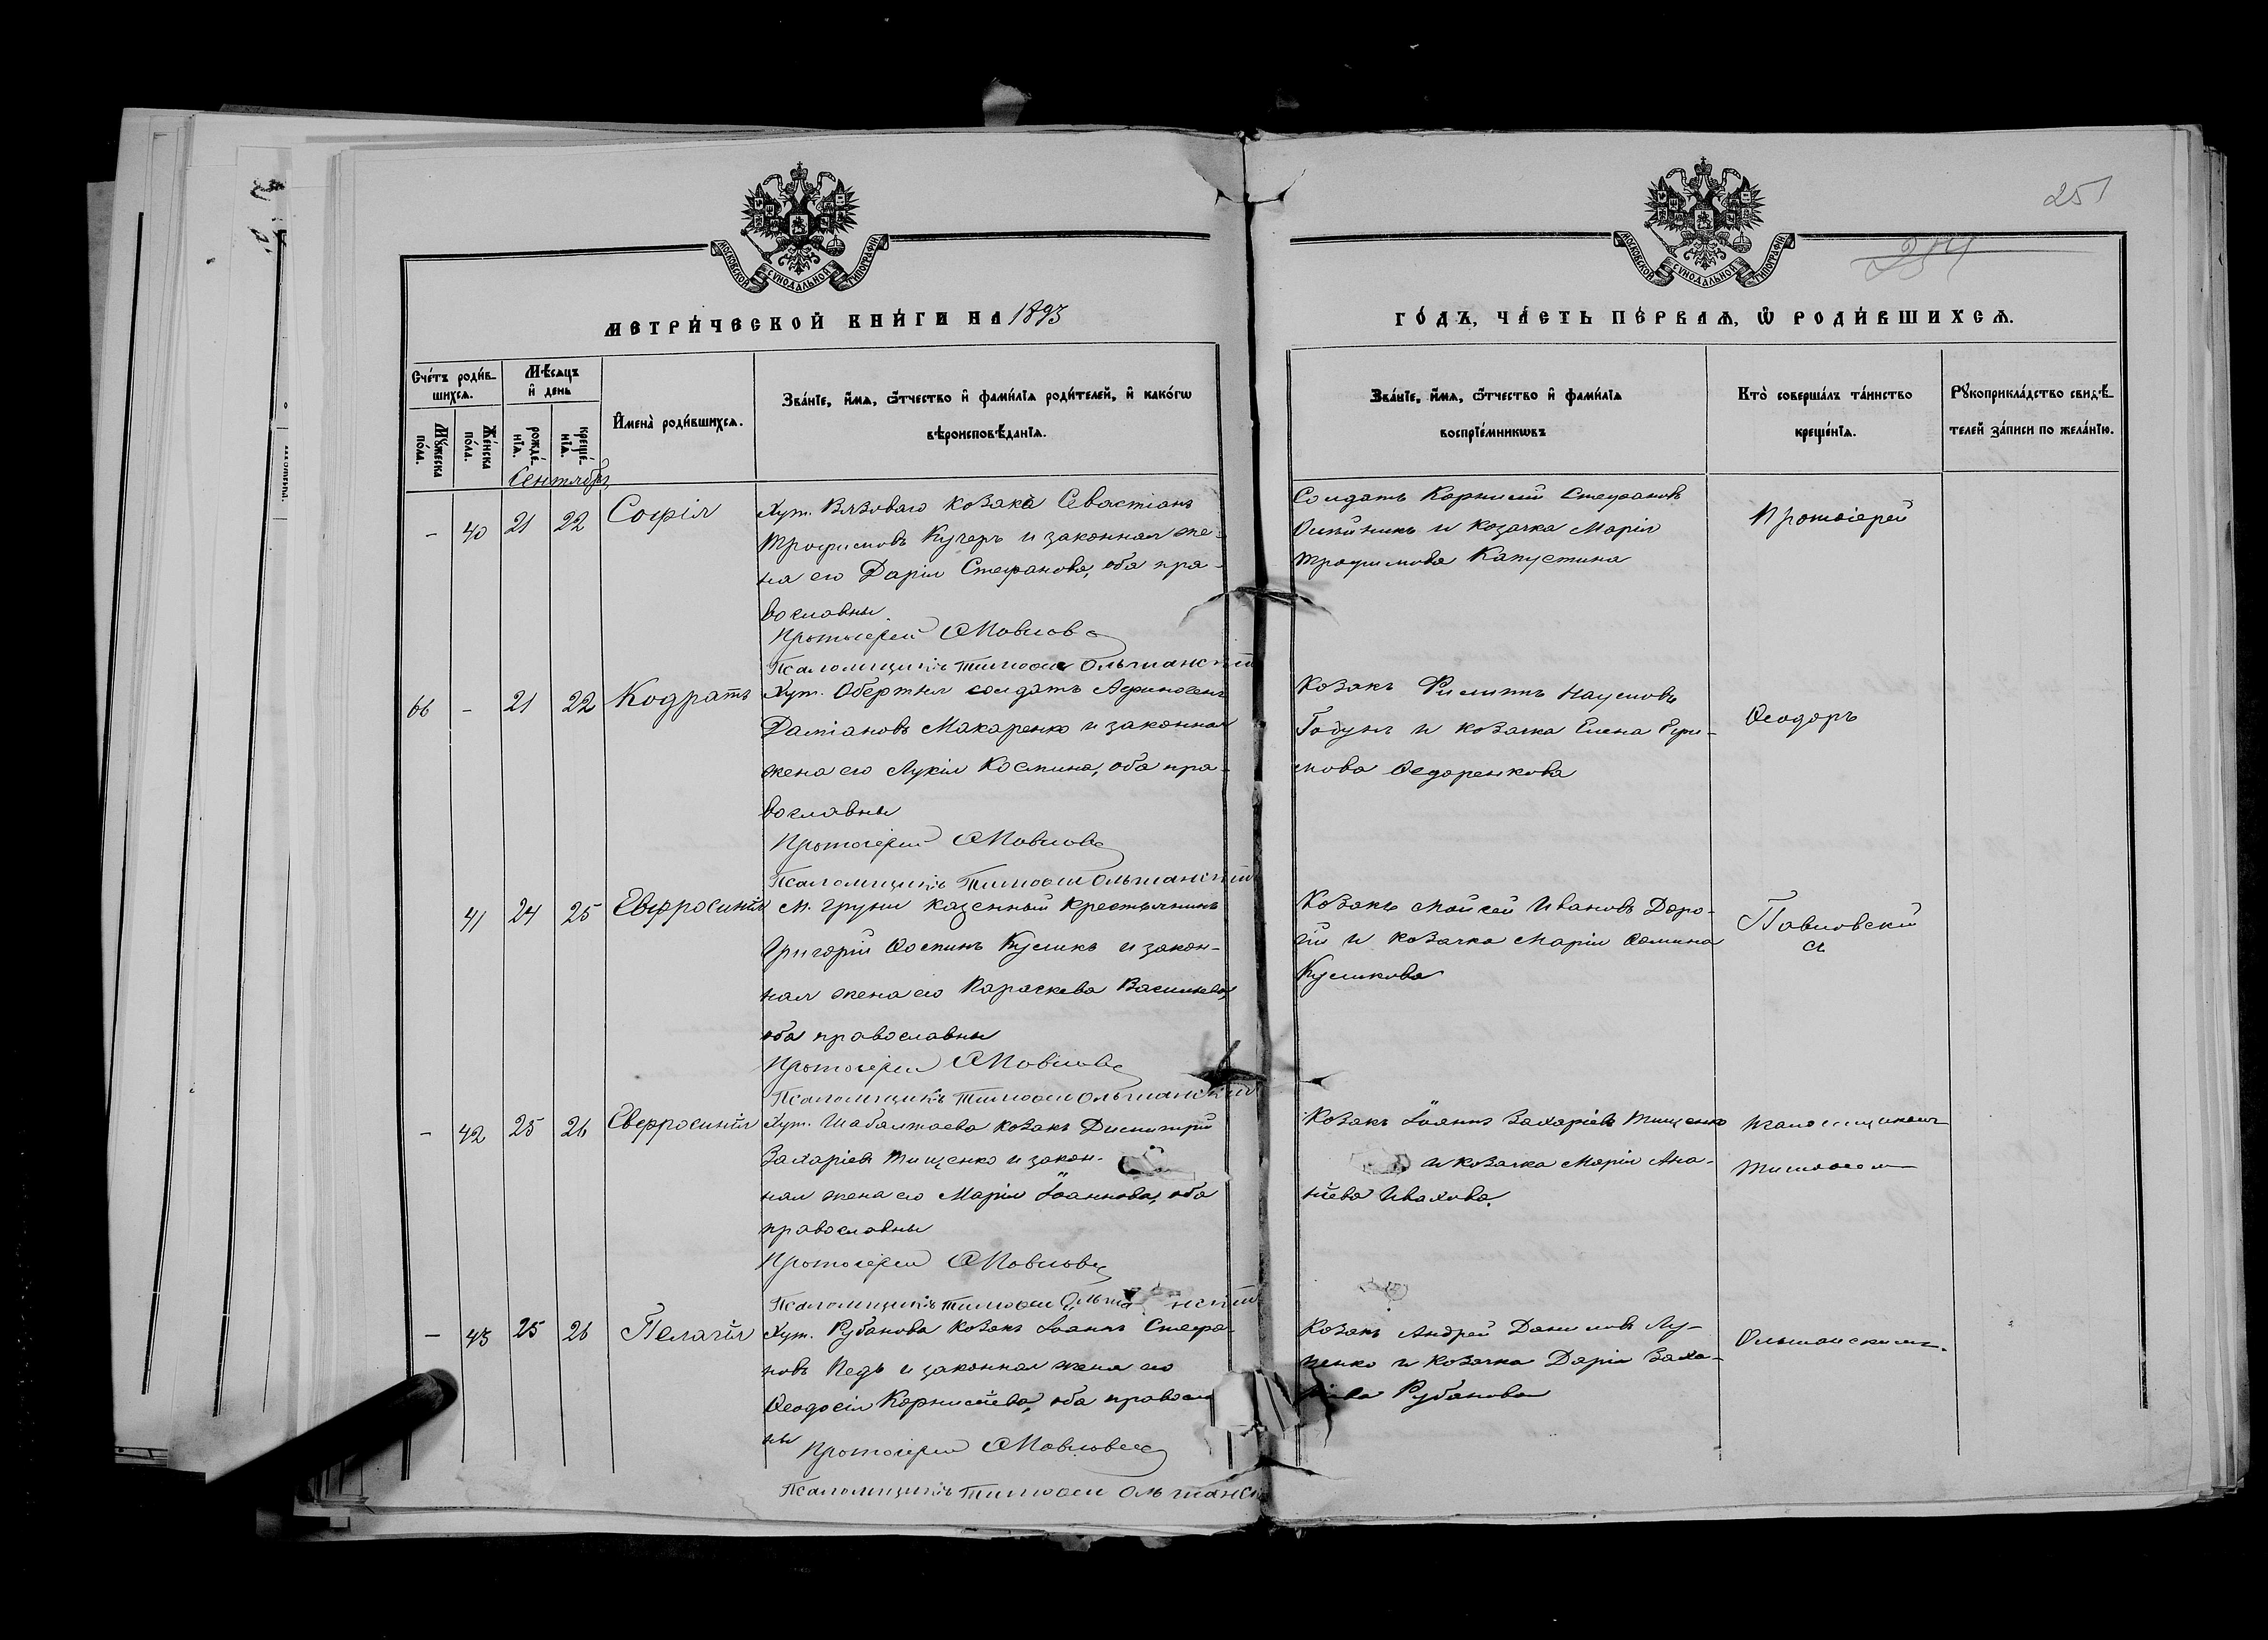 251
МОСКОВСКОЙ СУНОДАЛЬНОЙ ТИПОГРАФІИ
МОСКОВСКОЙ СУНОДАЛЬНОЙ ТИПОГРАФІИ
МЕТРИ́ЧЕСКОЙ КНИ́ГИ НА 1893
ГО́ДЪ, ЧА́СТЬ ПЕ́РВАѦ, Ѽ РОДИ́ВШИХСѦ.
Сче́тъ роди́в-
шихсѧ.
Мꙋ́жеска по́ла.
Же́нска по́ла.
Мѣ́сѧцъ
и҆ день
рожде́-
нїѧ.
креще́-
нїѧ.
И҆мена̀ роди́вшихсѧ.
Зва́нїе, и҆́мѧ, ѻ҆́тчество и҆ фами́лїѧ роди́телей, и҆ како́гѡ
вѣроисповѣ́данїѧ.
Зва́нїе, и҆́мѧ, ѻ҆́тчество и҆ фами́лїѧ
воспрїе́мникѡвъ
Кто̀ соверша́лъ та́инство
креще́нїѧ.
Рꙋкоприкла́дство свидѣ́-
телей за́писи по жела́нїю.
Сентябрь
- 40 21 22 Софія
Хут. Вязоваго козакъ Севастіанъ
Трофимовъ Кучеръ и законная же-
на его Дарія Стефанова, оба пра-
вославны.
Протоіерей
Псаломщикъ Тимоѳей Ольшанскій
Солдатъ Корнилій Стефановъ
Олейникъ и козачка Марія
Трофимова Капустина
Протоіерей
66 - 21 22 Кодратъ
Хут. солдатъ Афиногенъ
Даміановъ Макаренко и законная
жена его Лукія Космина, оба пра-
вославны
Протоіерей
Псаломщикъ Тимоѳей Ольшанскій
Козакъ Филиппъ Наумовъ
Годунъ и козачка Елена
Ѳедоренкова
Ѳеодоръ
41 24 25 Евфросинія
М. Груни казенный крестьянинъ
Григорій Куликъ и закон-
ная жена его Параскева Васильева,
оба православны
Протоіерей
Псаломщикъ Тимоѳей Ольшанскій
Козакъ Моисей Ивановъ Доро-
гій и козачка Марія
Куликова
Павловскій
съ
- 42 25 26 Евфросинія
Хут. Шабалтаева козакъ Димитрій
Захаріевъ Тищенко и закон-
ная жена его Марія Іоаннова, оба
православны
Протоіерей
Псаломщикъ Тимоѳей
Козакъ Іоаннъ Захаріевъ Тищенко
и козачка Марія Ана-
ніева Ивахова.
псаломщикомъ
Тимоѳеем
- 43 25 26 Пелагія
Хут. Рубанова козакъ Іоаннъ Стефа-
новъ Педь и законная жена его
Ѳеодосія Корниліева, оба правосла
ны
Протоіерей
Псаломщикъ Тимоѳей
Козакъ Андрей Даниловъ Лу-
ценко и козачка Дарія Заха-
Рубанова
Ольшанскимъ.